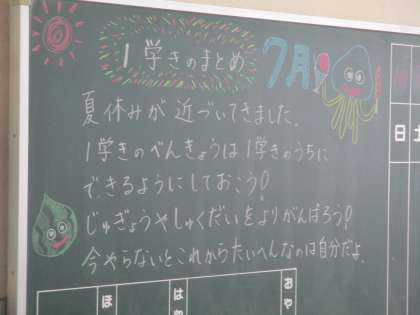 1学きのまとめ
7月
夏休みが近づいてきました。
1学きのべんきょうは1学きのうちに
できるようにしておこう!
じゅぎょうやしゅくだいをよりがんばろう!
今やらないとこれからたいへんなのは自分だよ。
日 土
ほ
は
おや